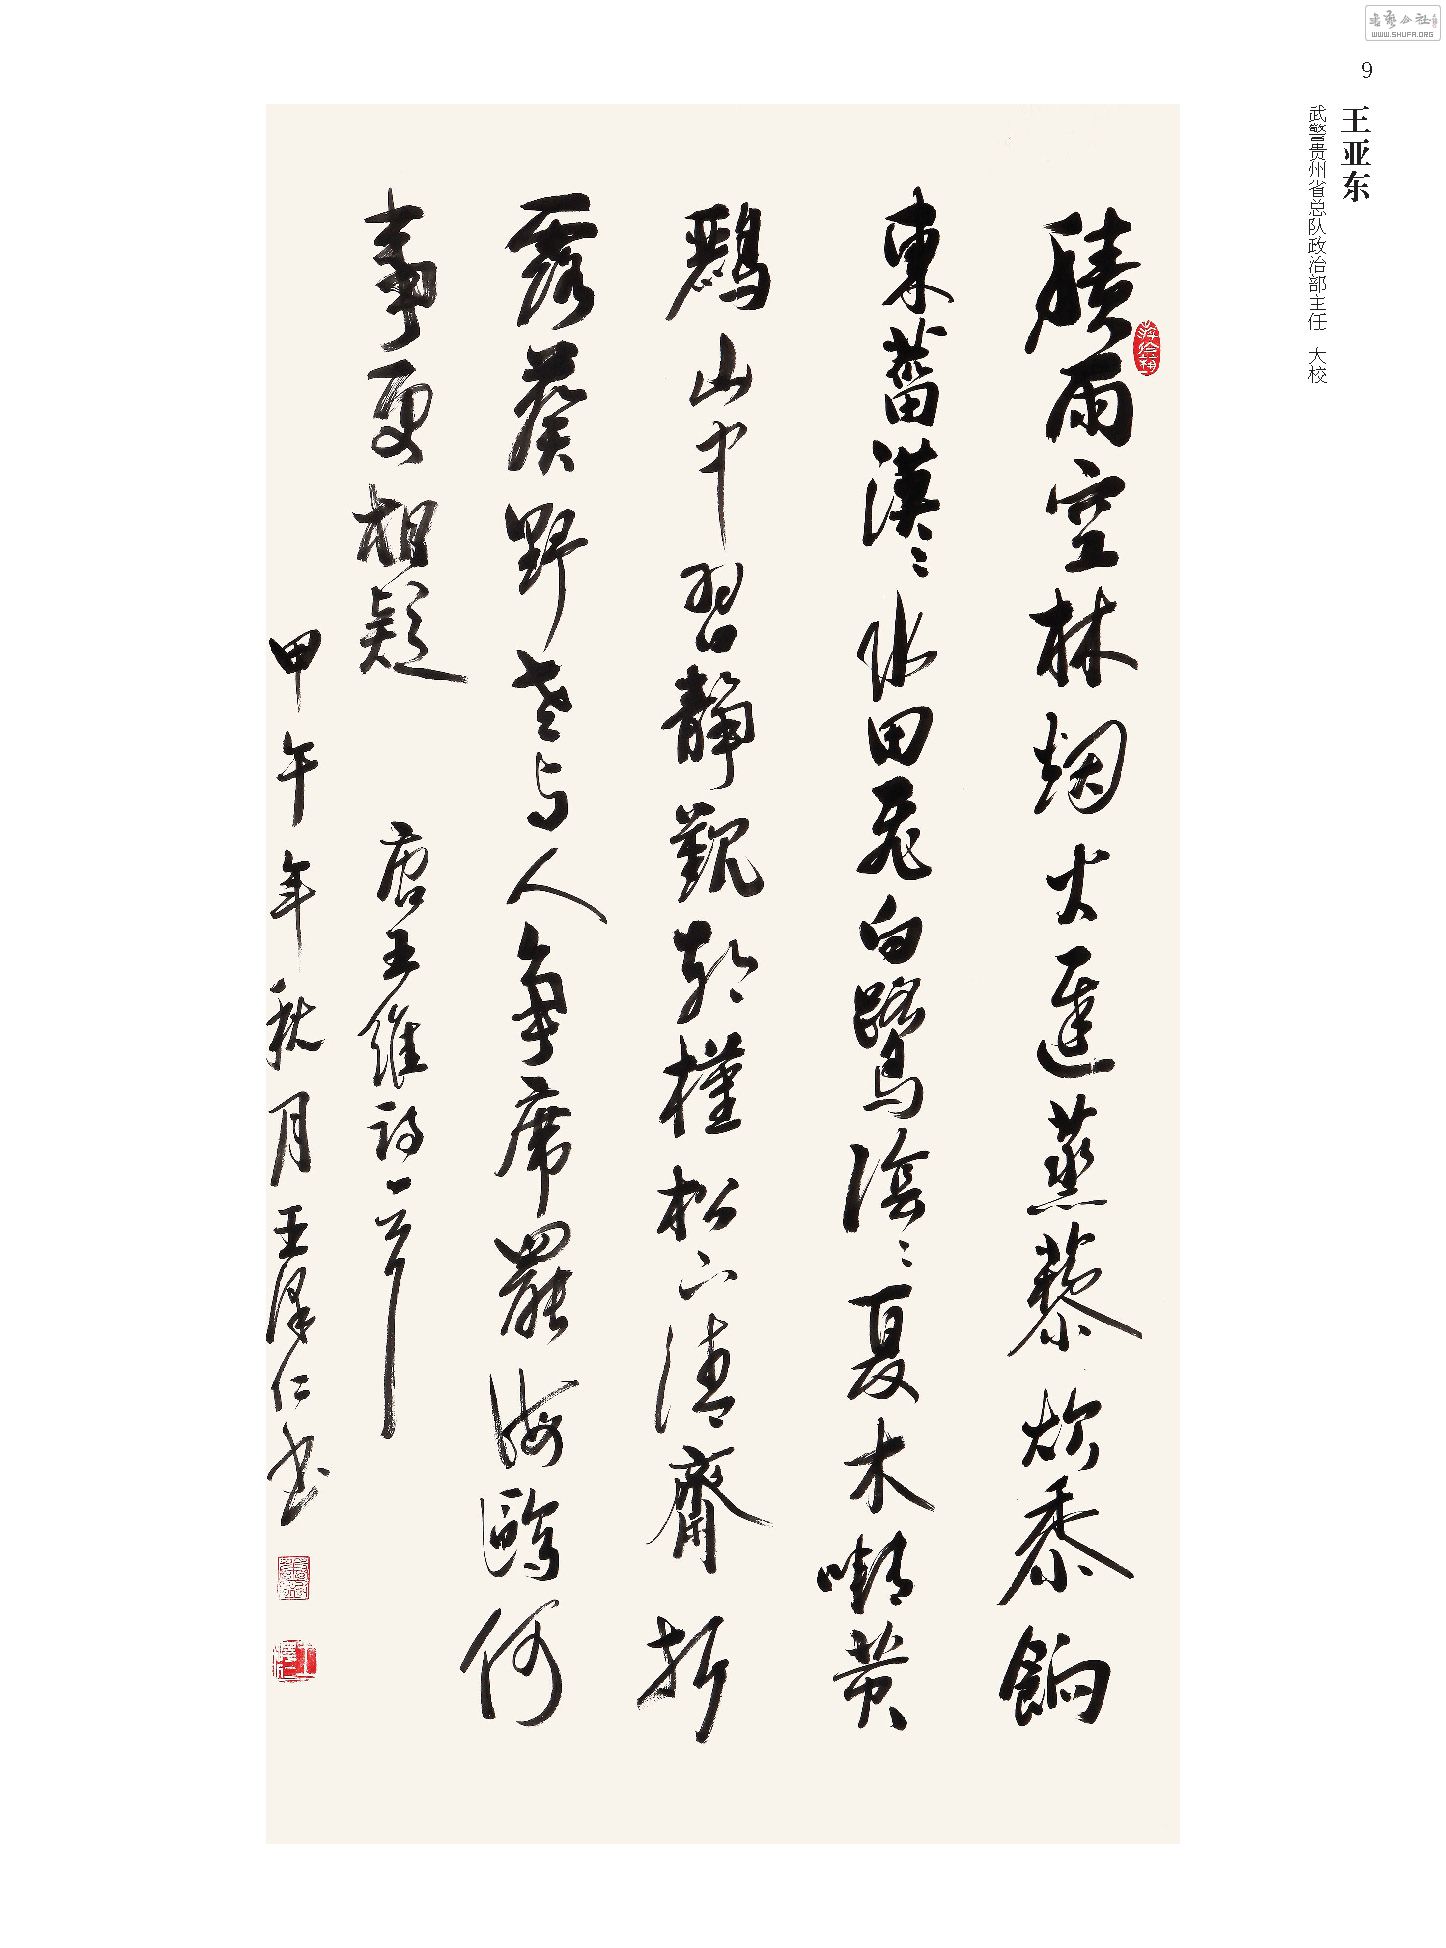 書藝公社
WWW.SHUFA.ORG
9
王亚东
武警贵州省总队政治部主任 大校
積雨空林烟火遲蒸藜炊黍餉
東菑漠〻水田飛白鷺陰〻夏木囀黄
鸝山中習靜觀朝槿松下清齋折
露葵野老与人争席罷海鷗何
事更相疑 唐王維詩一首
甲午年秋月王澤仁书